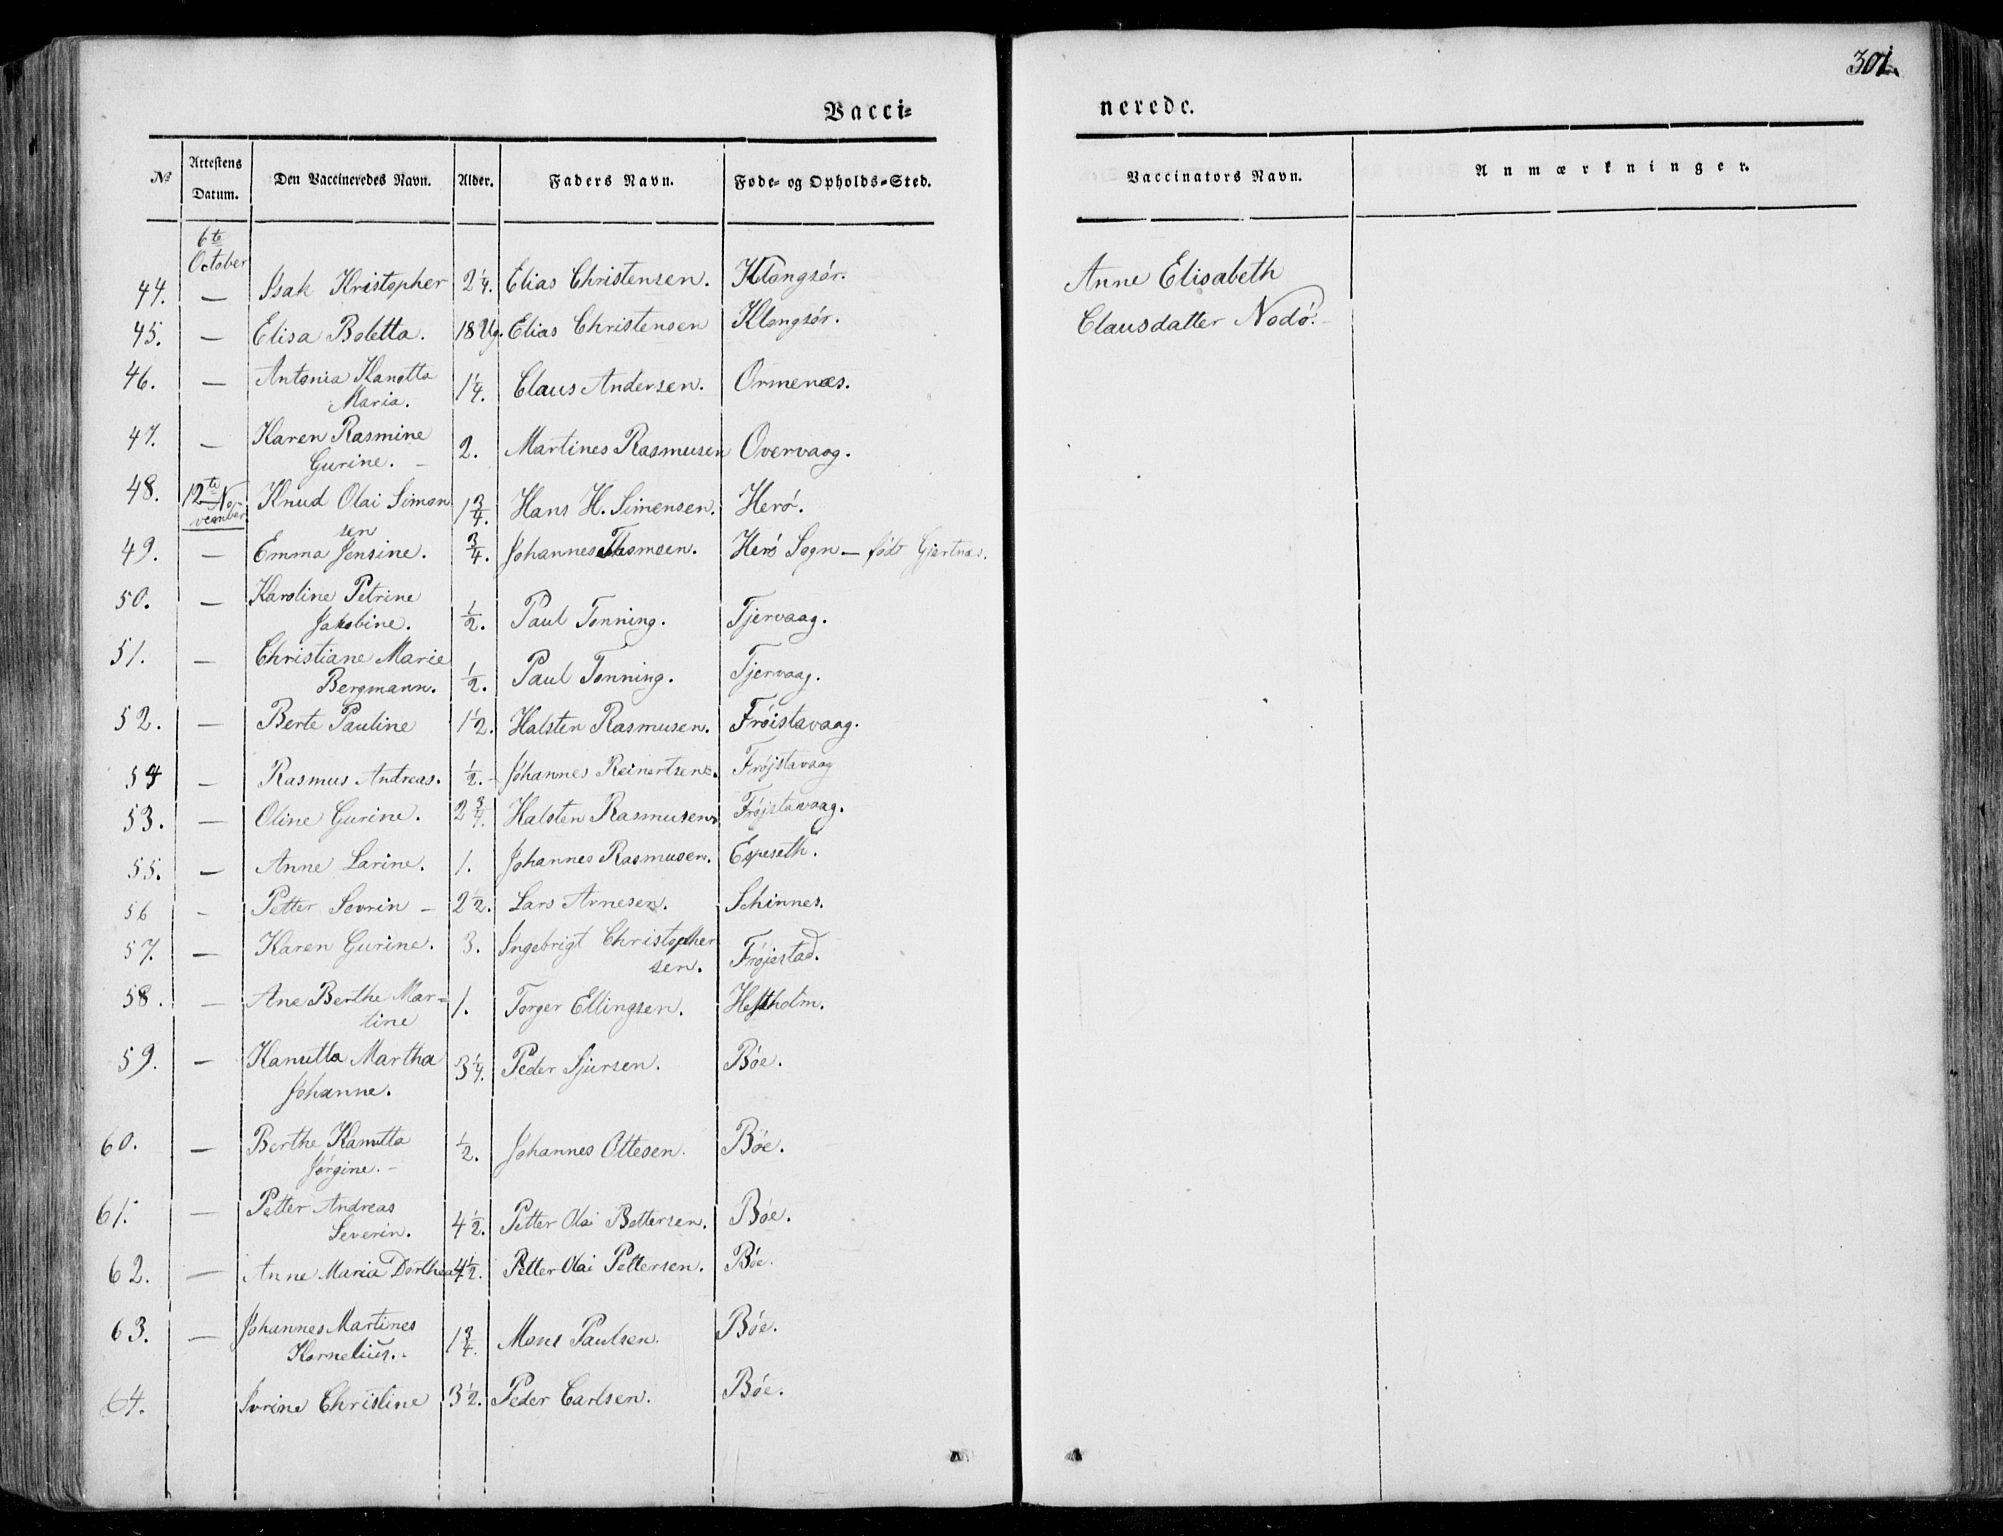 301.
Vacci=
nerede.
No Attestens Datum. Den Vaccineredes Navn. Alder. Faders Navn. Føde- og Opholds-Sted. Vaccinators Navn. Anmærkninger.
6te October
44. — Isak Kristopher 2 1/4. Elias Christensen. Klongsør. Anne Elisabeth
45. — Elisa Boletta. 18 Ug. Elias Christensen Klongsør. Clausdatter Nodø.
46. — Antonia Kanotta
Maria. 1 1/4. Claus Andersen. Ormenæs.
47. — Karen Rasmine
Gurine. — 2. Martines Rasmusen Overvaag.
48. 12te November Knud Olai Simon
sen 1 3/4. Hans H. Simensen. Herø.
49. — Emma Jensine. 3/4. Johannes Thomsen. Herø Sogn — født Gjertnæs.
50. — Karoline Petrine
Jakobine. 1/2. Paul Tonning. Tjervaag.
51. — Christiane Marie
Bergmann. 1/2. Paul Tonning. Tjervaag.
52. — Berte Pauline 1 1/2. Halsten Rasmusen. Frøistavaag.
54 — Rasmus Andreas. 1/2. Johannes Reinertsen. Frøjstavaag
53. — Oline Gurine. 2 3/4. Halsten Rasmusen. Frøjstavaag.
55. — Anne Larine. 1. Johannes Rasmusen. Espeseth.
56 — Petter Sevrin — 2 1/2. Lars Arnesen. Schinnes.
57. — Karen Gurine. 3. Ingebrigt Christopher
sen. Frøjestad.
58. — Ane Berthe Mar=
tine 1. Torger Ellingsen. Hestholm.
59. — Kanutta Martha
Johanne. 3 1/4. Peder Sjursen. Bøe.
60. — Berthe Kanutta
Jørgine. — 1/2. Johannes Ottesen. Bøe.
61. — Petter Andreas
Severin. 4 1/2. Petter Olai Bettersen. Bøe.
62. — Anne Maria Dorthea 4 1/2. Petter Olai Pettersen. Bøe.
63. — Johannes Martines
Kornelius. 1 3/4. Mons Paulsen. Bøe.
64. Ivrine Christine 3 1/2. Peder Carlsen. Bøe.